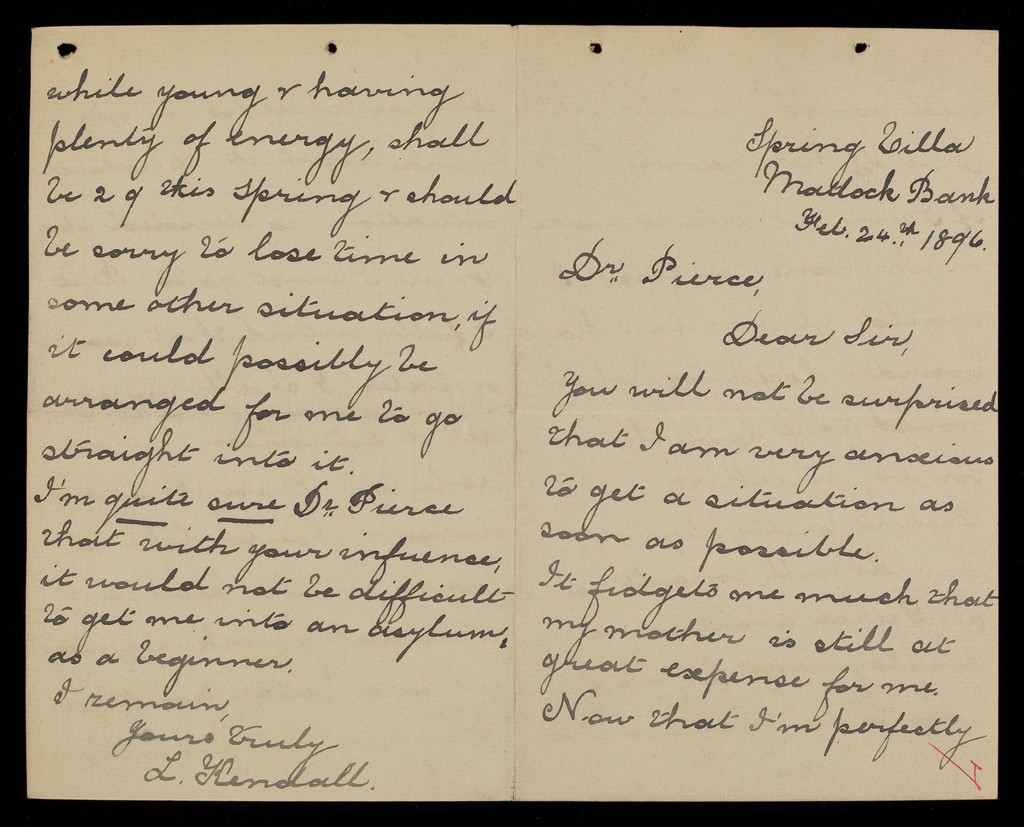 Spring Villa
Matlock Bank
Feb. 24.th 1896.
Dr. Pierce,
Dear Sir,
You will not be surprised
that I am very anxious
to get a situation as
soon as possible.
It fidgets me much that
my mother is still at
great expense for me.
Now that I'm perfectly
while young & having
plenty of energy, shall
be 29 this Spring & should
be sorry to lose time in
some other situation, if
it could possibly be
arranged for me to go
straight into it.
I'm quite sure Dr. Pierce
that with your infuence,
it would not be difficult
to get me into an asylum,
as a beginner.
I remain,
Yours truly
L. Kendall.